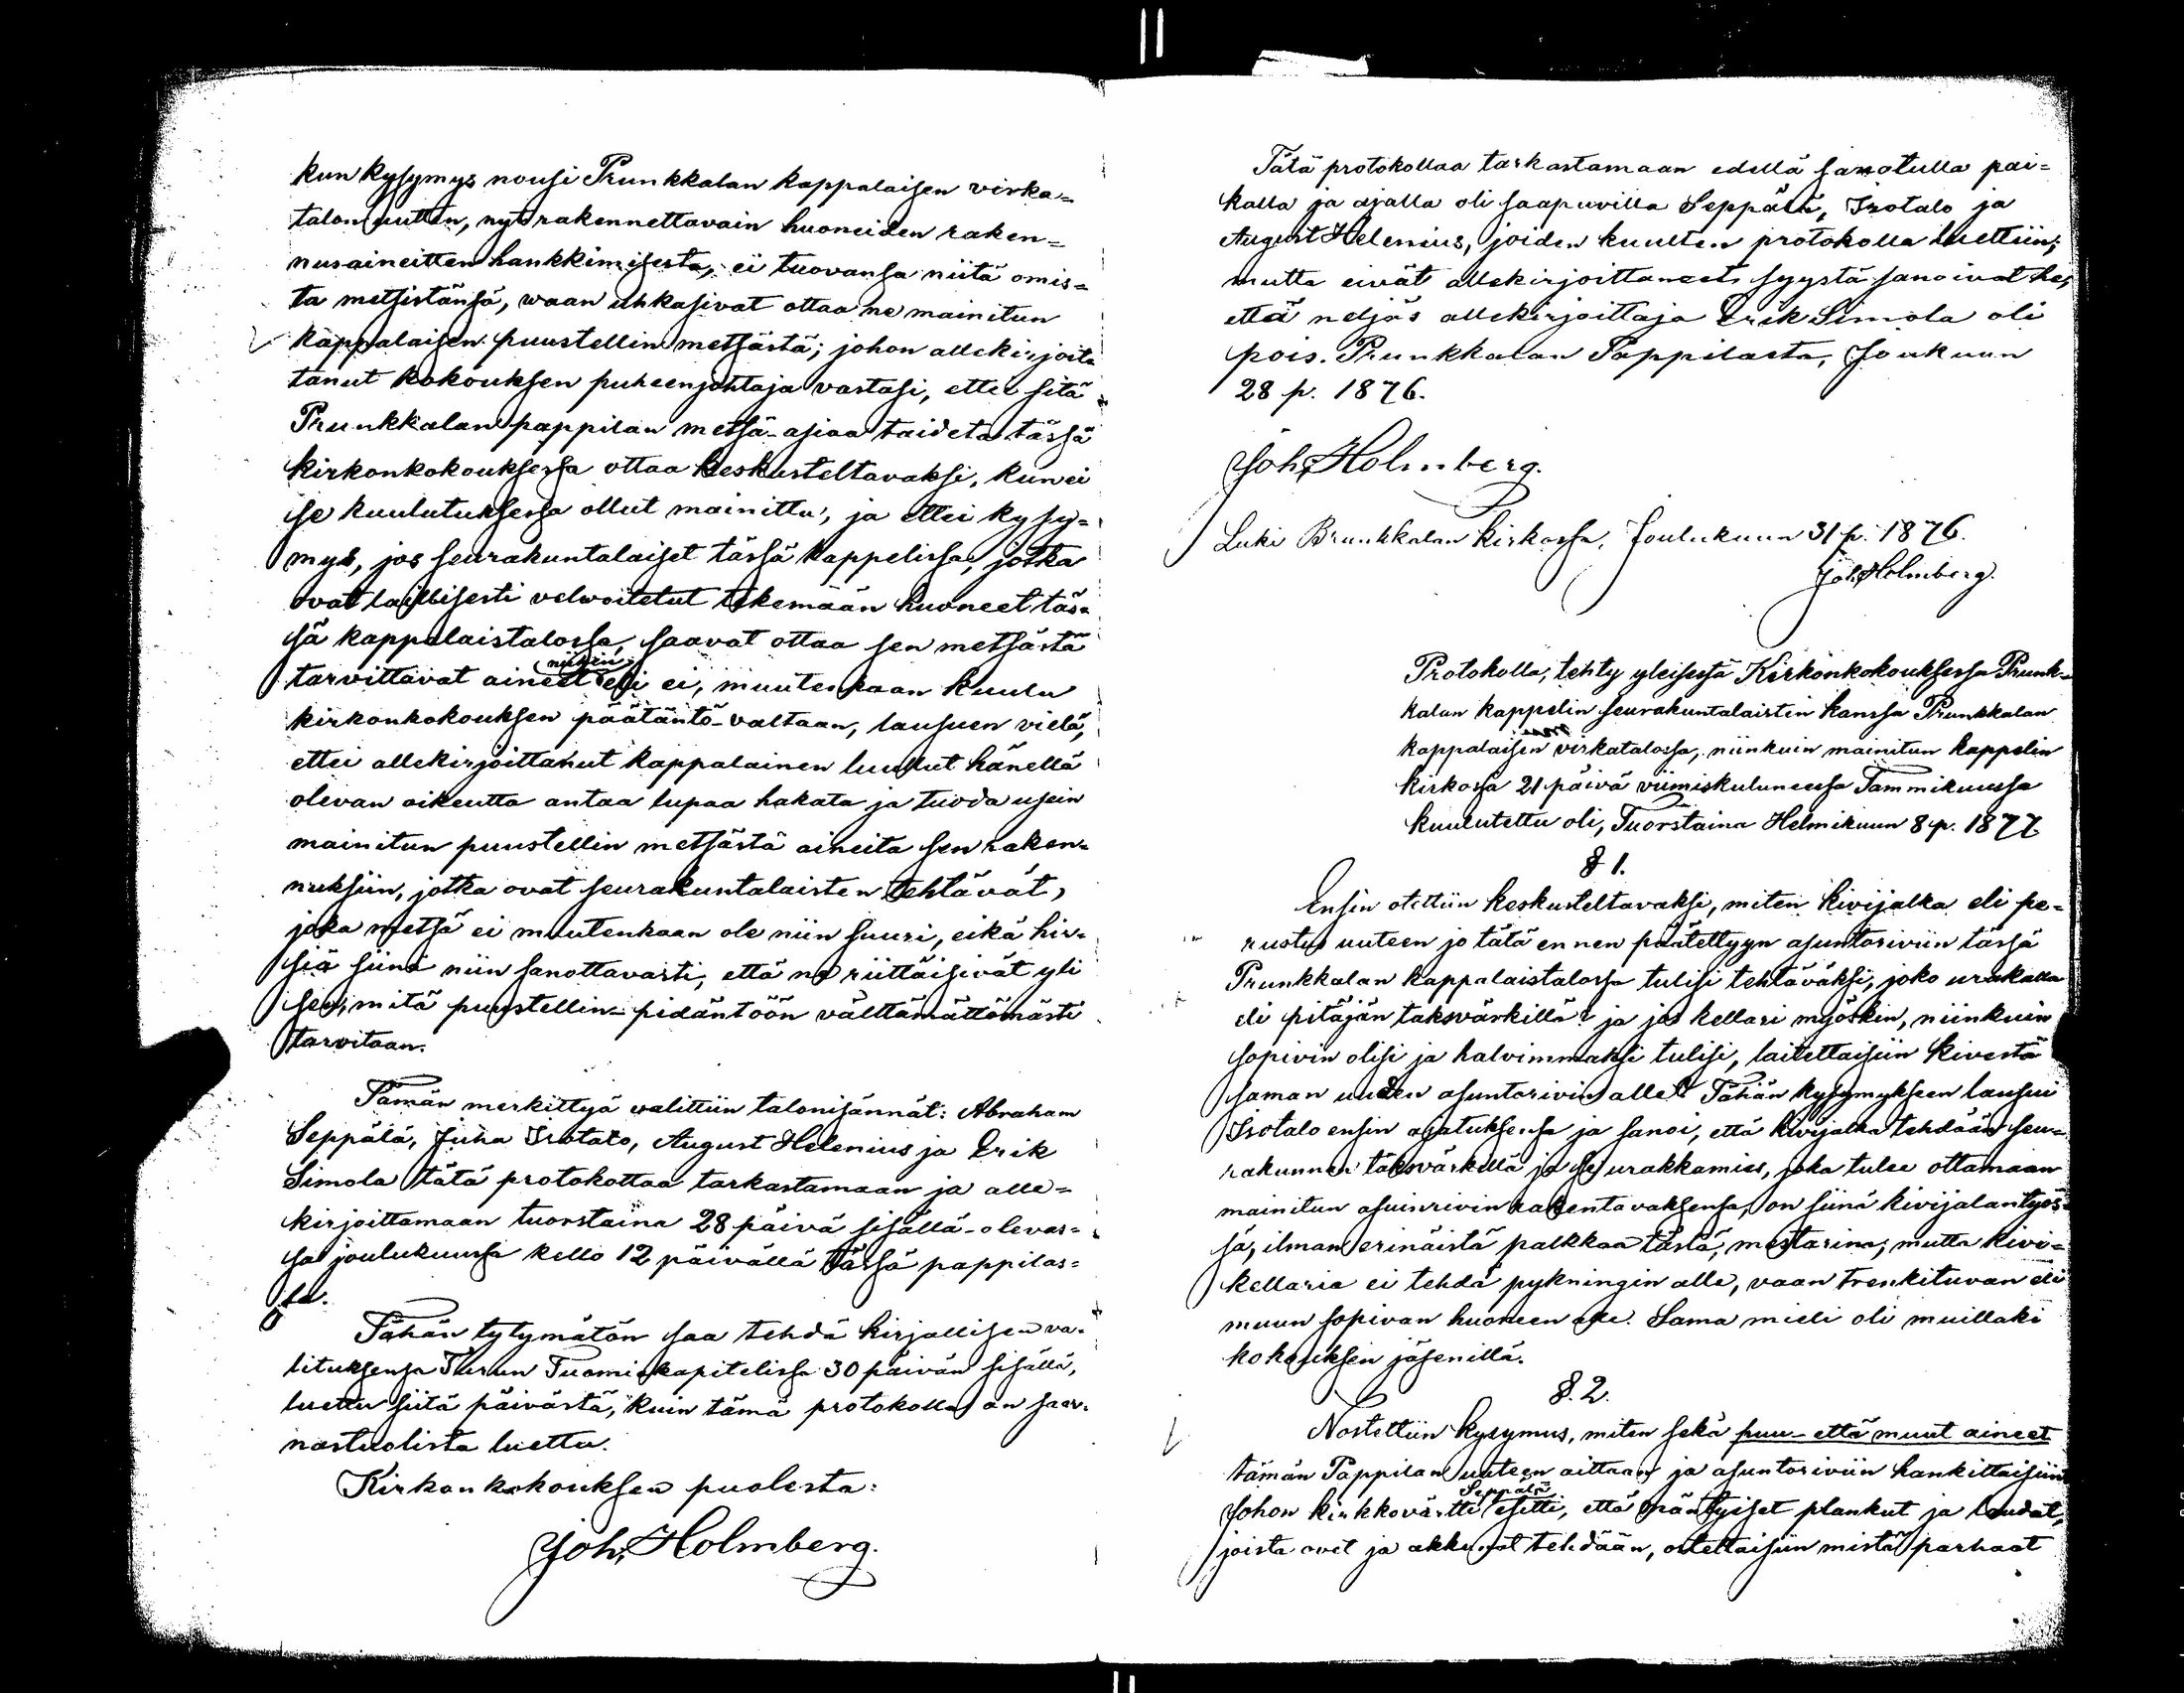 kun kysymys nousi Prunkkalan kappalaisen virka=
talon uutten, nyt rakennettavain huoneiden raken=
nusaineitten hankkimisesta, ei tuovansa niitä omis=
ta metsistänsä, waan uhkasivat ottaa ne mainitun
kappalaisen puustellin metsästä; johon allekirjoit=
tanut kokouksen puheenjohtaja vastasi, ettei sitä
Prunkkalan pappilan metsä-asiaa taideta tässä
kirkonkokouksessa ottaa keskusteltavaksi, kun ei
se kuulutuksessa ollut mainittu, ja ettei kysy=
mys, jos seurakuntalaiset tässä kappelissa, jotka
ovat laillisesti velwoitetut tekemään huoneet täs=
sä kappalaistalossa, saavat ottaa sen metsästä
niihin
tarvittavat aineet eli ei, muutenkaan kuulu
kirkonkokouksen päätäntö-valtaan, lausuen vielä,
ettei allekirjoittanut kappalainen luullut hänellä
olevan oikeutta antaa lupaa hakata ja tuoda usein
mainitun puustellin metsästä aineita sen raken=
nuksiin, jotka ovat seurakuntalaisten tehtävät,
joka metsä ei muutenkaan ole niin suuri, eikä hir=
siä siinä niin sanottavasti, että ne riittäisivät yli
sen, mitä puustellin-pidäntöön välttämättömästi
tarvitaan.
Tämän merkittyä walittiin talonisännät: Abraham
Seppälä, Juha Isotalo, August Helenius ja Erik
Simola tätä protokollaa tarkastamaan ja alle=
kirjoittamaan tuorstaina 28 päivä sisällä-olevas=
sa joulukuussa kello 12 päivällä tässä pappilas=
sa.
Tähän tytymätön saa tehdä kirjallisen va=
lituksensa Turun Tuomiokapitelissa 30 päivän sisällä,
luettu siitä päivästä, kuin tämä protokolla on saar=
nastuolista luettu.
Kirkonkokouksen puolesta:
Joh. Holmberg.
Tätä protokollaa tarkastamaan edellä sanotulla pai=
kalla ja ajalla oli saapuvilla Seppälä, Isotalo ja
August Helenius, joiden kuulten protokolla luettiin;
mutta eivät allekirjoittaneet, syystä sanoivat he,
että neljäs allekirjoittaja Erik Simola oli
pois. Prunkkalan Pappilasta, Joukuun
28 p. 1876.
Joh. Holmberg.
Luki Prunkkalan kirkossa, Joulukuun 31 p. 1876.
Joh. Holmberg.
Protokolla, tehty yleisessä Kirkonkokouksessa Prunk=
kalan kappelin seurakuntalaisten kanssa Prunkkalan
kappalaisen virkatalossa, niinkuin mainitun kappelin
kirkossa 21 päivä viimiskuluneessa Tammikuussa
kuulutettu oli, Tuorstaina Helmikuun 8 p. 1877
§ 1.
Ensin otettiin keskusteltavaksi, miten kivijalka eli pe=
rustus uuteen jo tätä ennen päätettyyn asuntoriviin tässä
Prunkkalan kappalaistalossa tulisi tehtäväksi, joko urakalla
eli pitäjän taksvärkillä? ja jos kellari myöskin, niinkuin
sopivin olisi ja halvimmaksi tulisi, laitettaisiin kivestä
saman uuden asuntorivin alle? Tähän kysymykseen lausui
Isotalo ensin ajatuksensa ja sanoi, että kivijalka tehdään seu=
rakunnan taksvärkillä ja se urakkamies, joka tulee ottamaan
mainitun asuinrivin rakentavaksensa, on siinä kivijalantyös=
sä, ilman erinäistä palkkaa tästä, mestarina; mutta kivi=
kellaria ei tehdä pykningin alle, vaan trenkituvan eli
muun sopivan huoneen alle. Sama mieli oli muillaki
kokouksen jäsenillä.
§. 2.
Nostettiin kysymus, miten sekä puu- että muut aineet
tämän Pappilan uuteen aittaan ja asuntoriviin hankittaisiin
Seppälä
Johon kirkkovärtti esitti, että mäntyiset plankut ja laudat,
joista ovet ja akkunat tehdään, ostettaisiin mistä parhaat